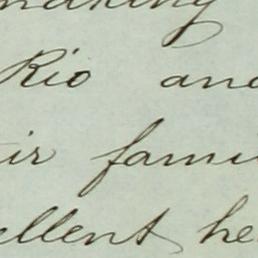 making
Rio and
ir fami
ellent he